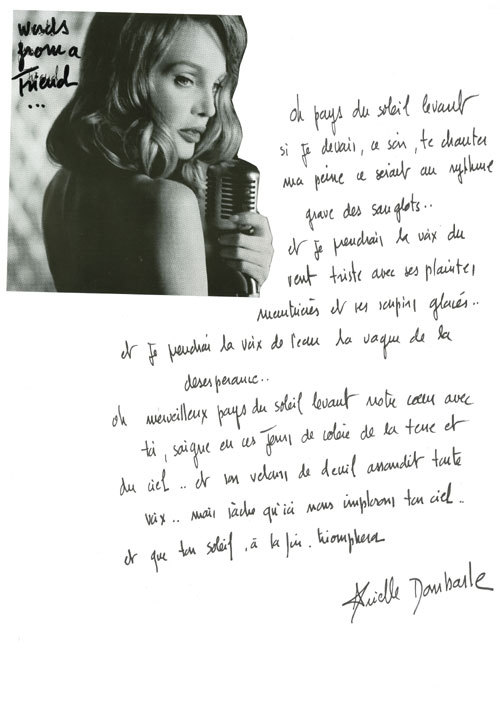 words
from a
Friend
...
oh pays du soleil levant
si je devais, ce soir, te chanter
ma peine ce serait au rythme
grave des sanglots..
et je prendrais la voix du
vent triste avec ses plaintes
meurtrières et ses soupirs glacés..
et je prendrai la voix de l'eau la vague de la
desesperance..
oh merveilleux pays du soleil levant notre cœur avec
toi, saigne en ces jours de colère de la terre et
du ciel .. et son velours de deuil assourdit toute
voix .. mais sache qu'ici nous implorons ton ciel ..
et que ton soleil, à la fin, triomphera
Arielle Dombasle